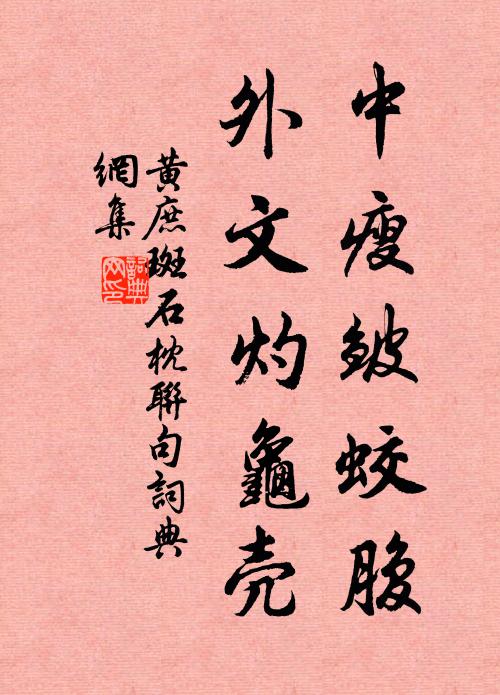 中瘦皴蛟腹
外文灼龜壳
黄庶斑石枕聯句詞典
網集
詞典
网印